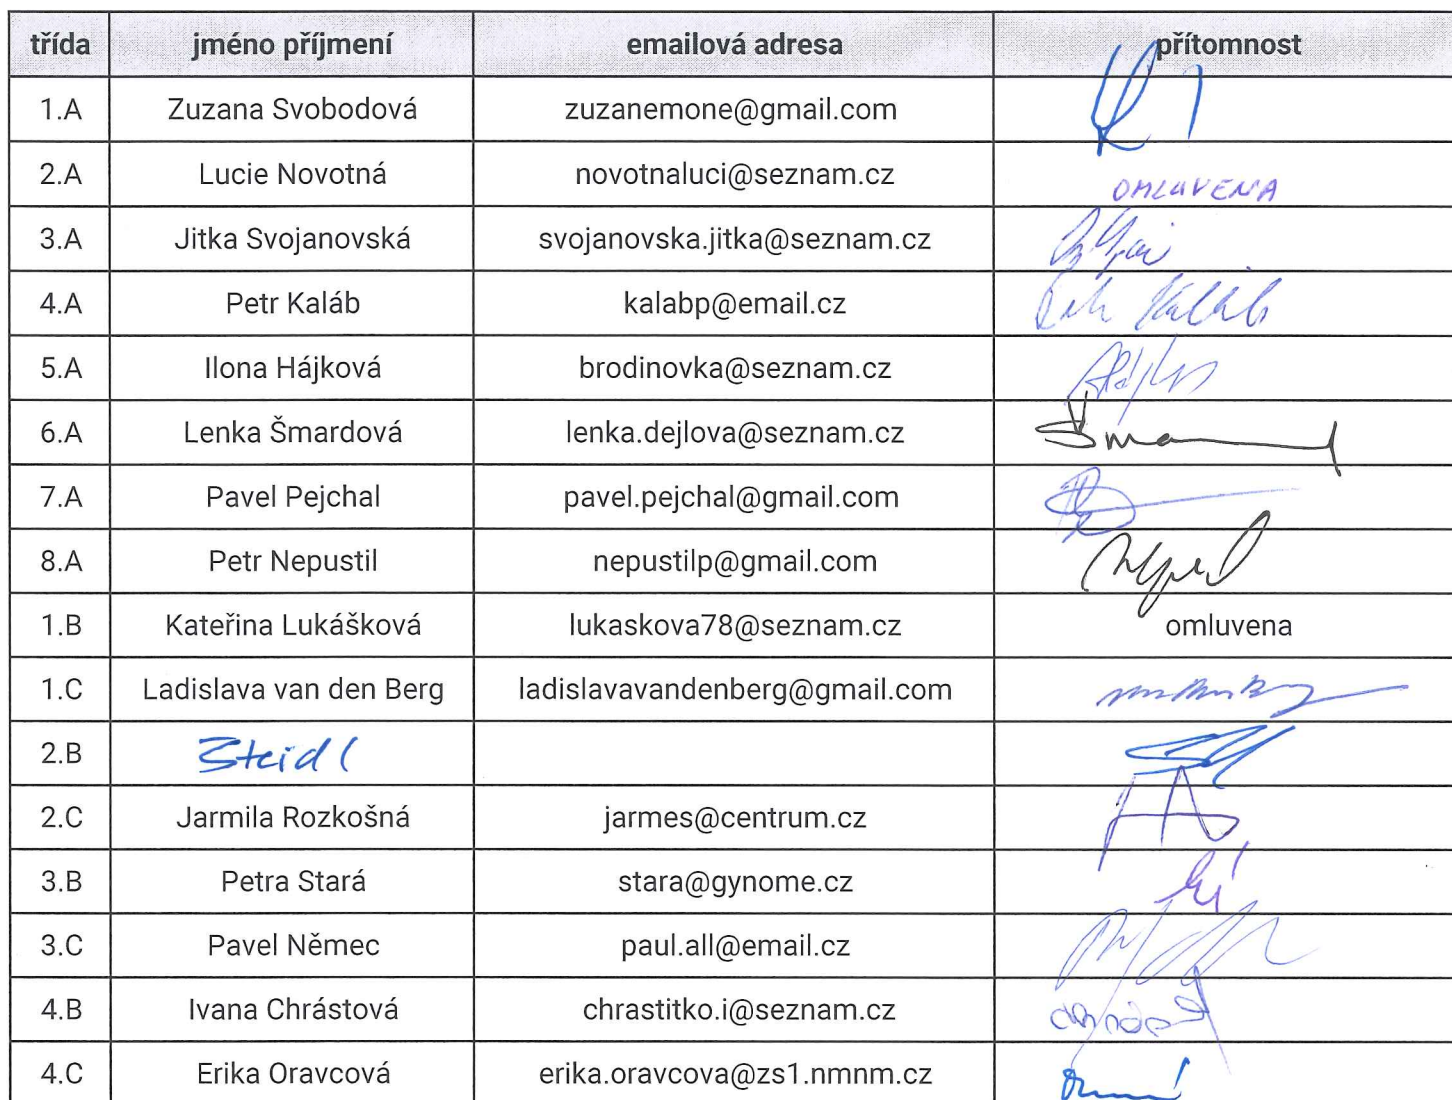 třída jméno příjmení emailová adresa přítomnost
1.A Zuzana Svobodová zuzanemone@gmail.com
2.A Lucie Novotná novotnaluci@seznam.cz OMLUVENA
3.A Jitka Svojanovská svojanovska.jitka@seznam.cz
4.A Petr Kaláb kalabp@email.cz Kaláb
5.A Ilona Hájková brodinovka@seznam.cz
6.A Lenka Šmardová lenka.dejlova@seznam.cz
7.A Pavel Pejchal pavel.pejchal@gmail.com
8.A Petr Nepustil nepustilp@gmail.com
1.B Kateřina Lukášková lukaskova78@seznam.cz omluvena
1.C Ladislava van den Berg ladislavavandenberg@gmail.com
2.B Steidl
2.C Jarmila Rozkošná jarmes@centrum.cz
3.B Petra Stará stara@gynome.cz
3.C Pavel Němec paul.all@email.cz
4.B Ivana Chrástová chrastitko.i@seznam.cz
4.C Erika Oravcová erika.oravcova@zs1.nmnm.cz